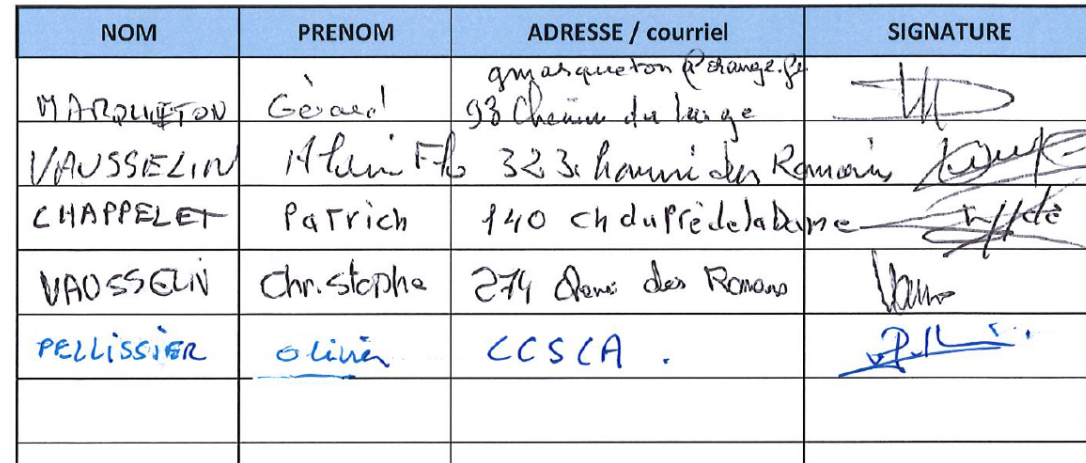 NOM PRENOM ADRESSE / courriel SIGNATURE
gmarqueton@orange.fr
MARQUETON Gérard 93 Chemin du large
VAUSSELIN Alain 323 chemin des Romains
CHAPPELET Patrick 140 ch du Pré de la Dame
VAUSSELIN Christophe 274 Chemin des Romains
PELLISSIER Olivier CCSCA .